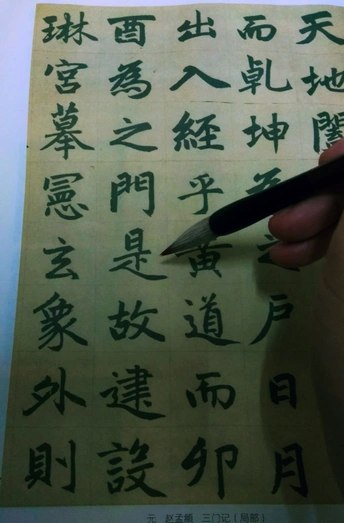 天地闔
而乾坤為之戶日月
出入經乎黃道而卯
酉為之門是故建設
琳宮摹憲玄象外則
元 赵孟頫 三门记（局部）